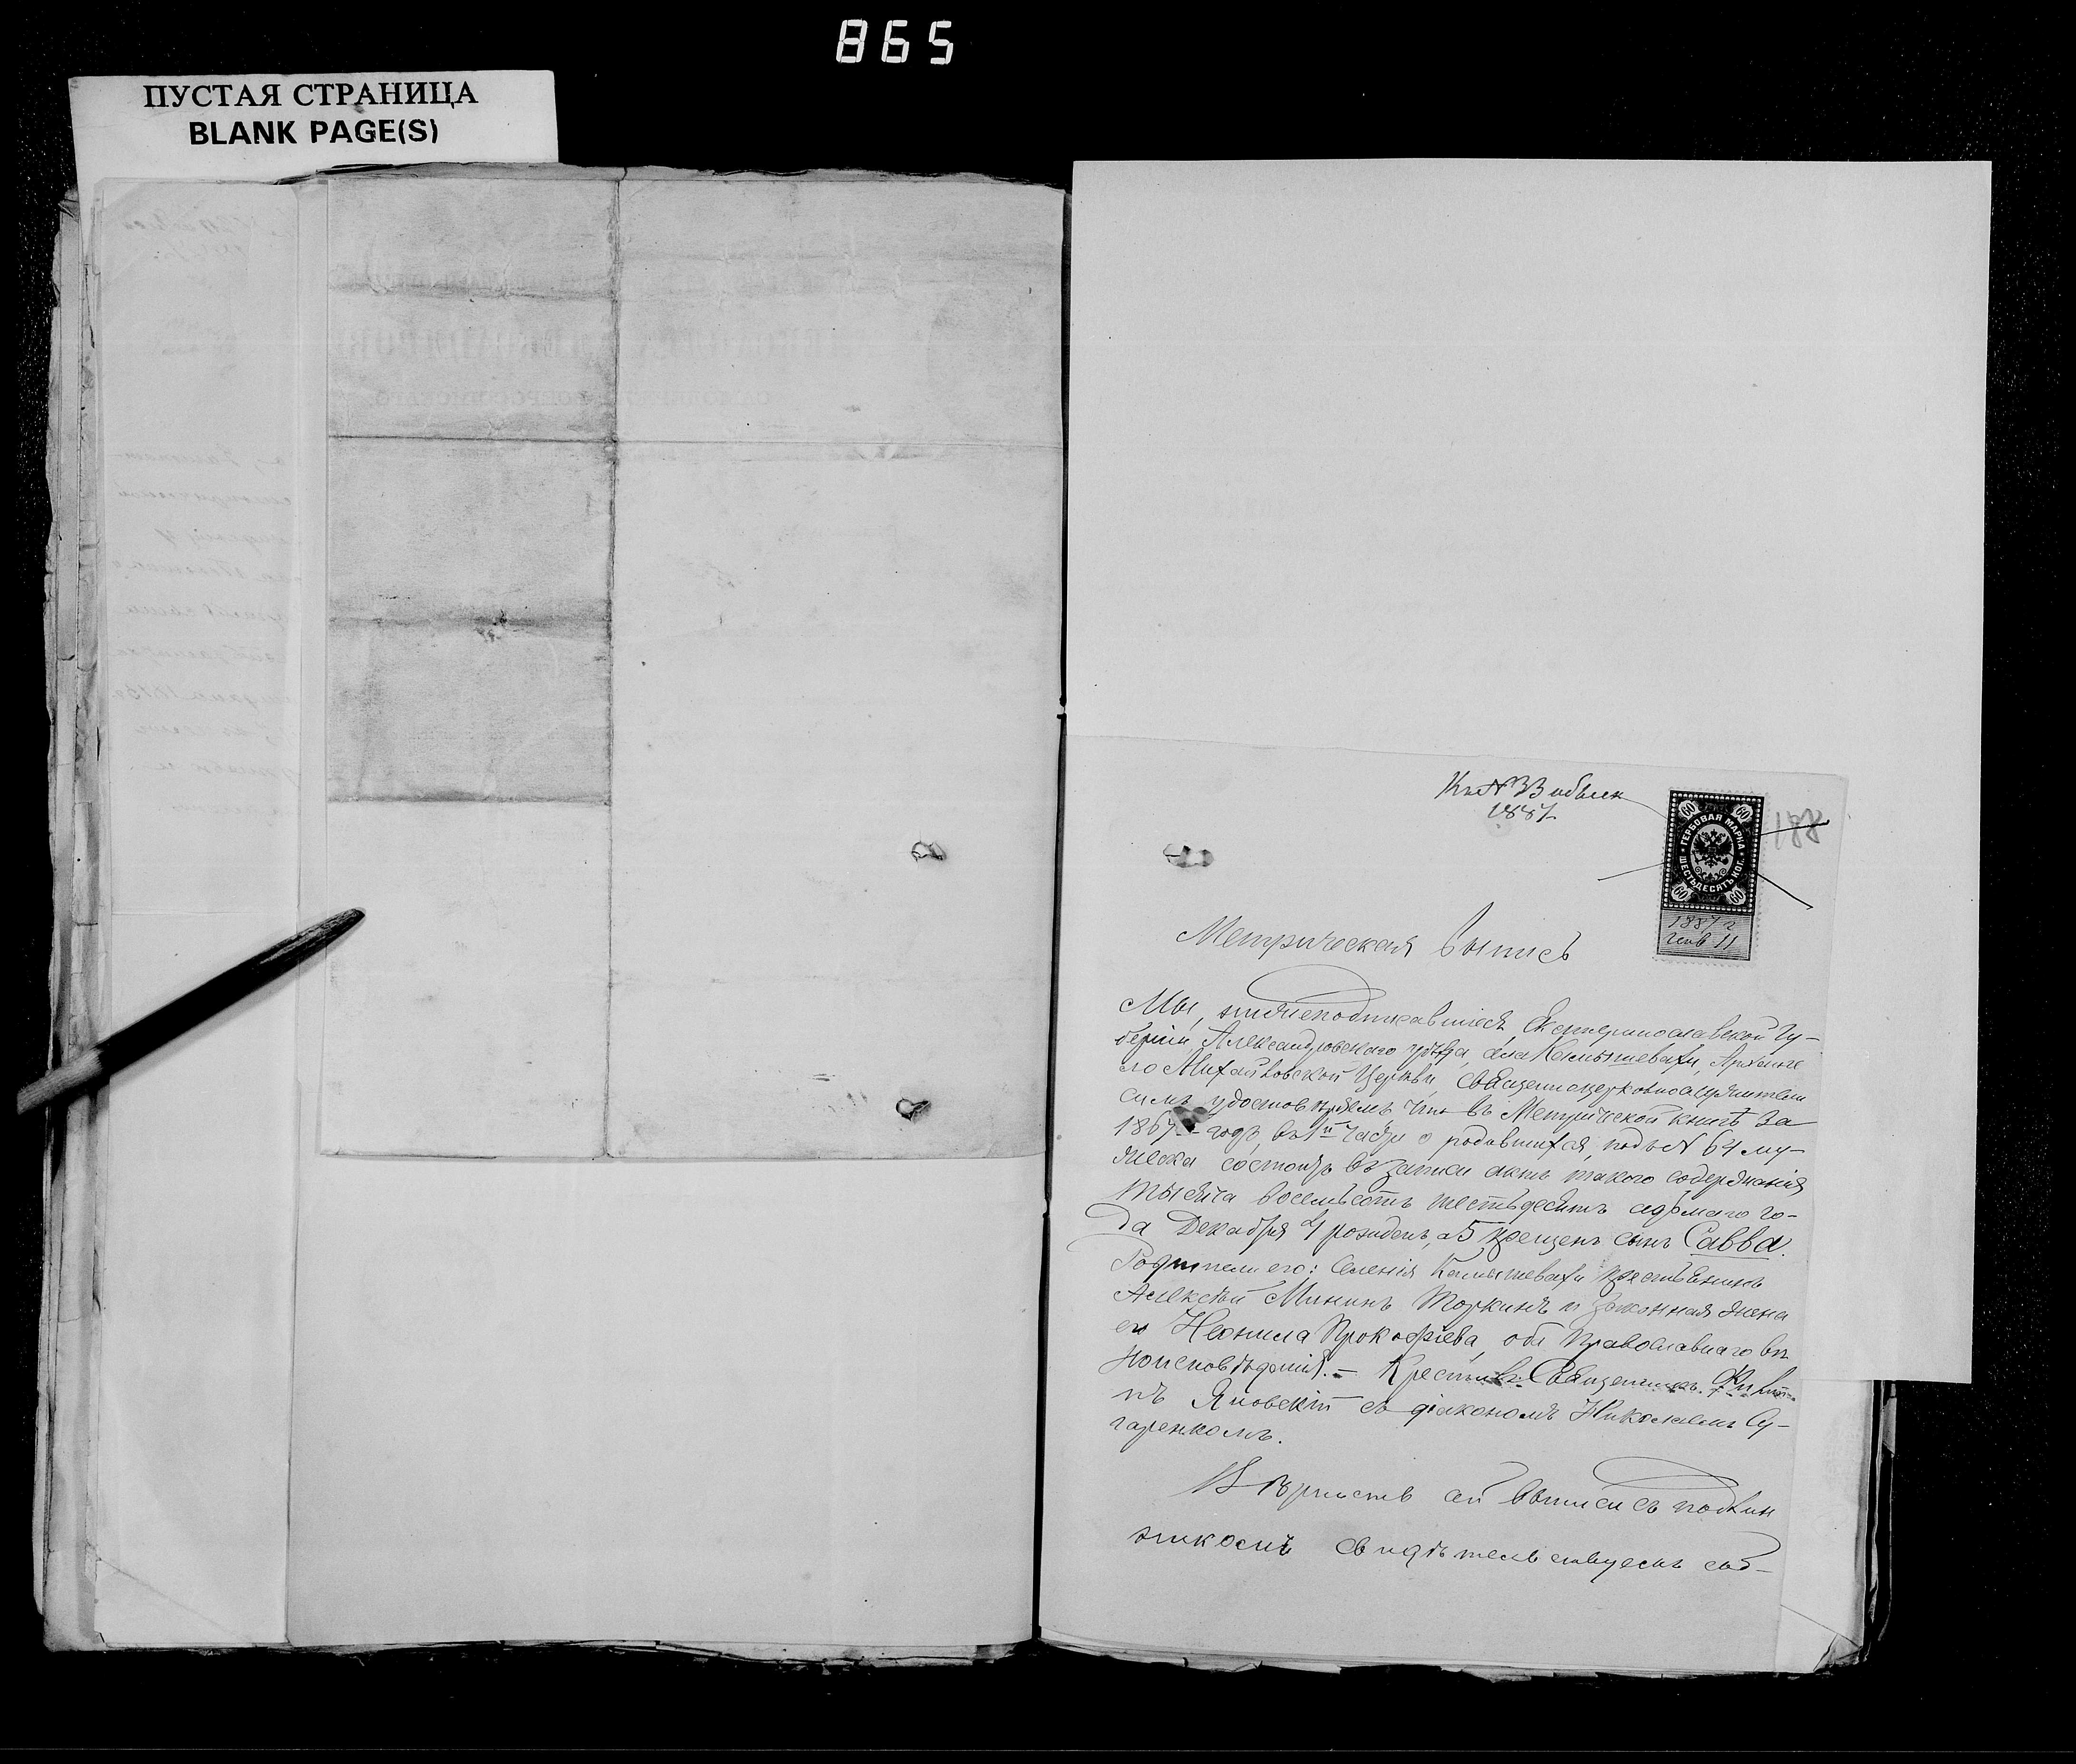 865
ПУСТАЯ СТРАНИЦА
BLANK PAGE(S)
1887
188
60 60
ГЕРБОВАЯ МАРКА
ШЕСТЬДЕСЯТЪ КОП.
60 60
1887 г
янв 11
Метрическая выпись
Мы, нижеподписавшіеся, Екатеринославской Гу-
берніи Александровскаго уѣзда, села Камышевахи, Архангел
ло Михайловской Церкви, Священноцерковнослужители
симъ удостовѣряемъ что въ Метрической книгѣ за
1867 годъ, въ 1й части о родившихся, подъ № 64 му-
жеска состоитъ въ записи актъ такого содержанія
тысяча восемьсотъ шестьдесятъ седьмаго го-
да Декабря 4 рожденъ, а 5 крещенъ сынъ Савва.
Родители его: Селенія Камышевахи крестьянинъ
Алексѣй Мининъ Торкинъ и законная жена
его Неонила Прокофіева, оба православнаго вѣ
ноисповѣданія. – Крестилъ Священникъ
пъ Яновскій съ діакономъ Николаемъ Су-
гаренкомъ.
Вѣрность сей выписи съ подлин
никомъ свидѣтельствуемъ съ